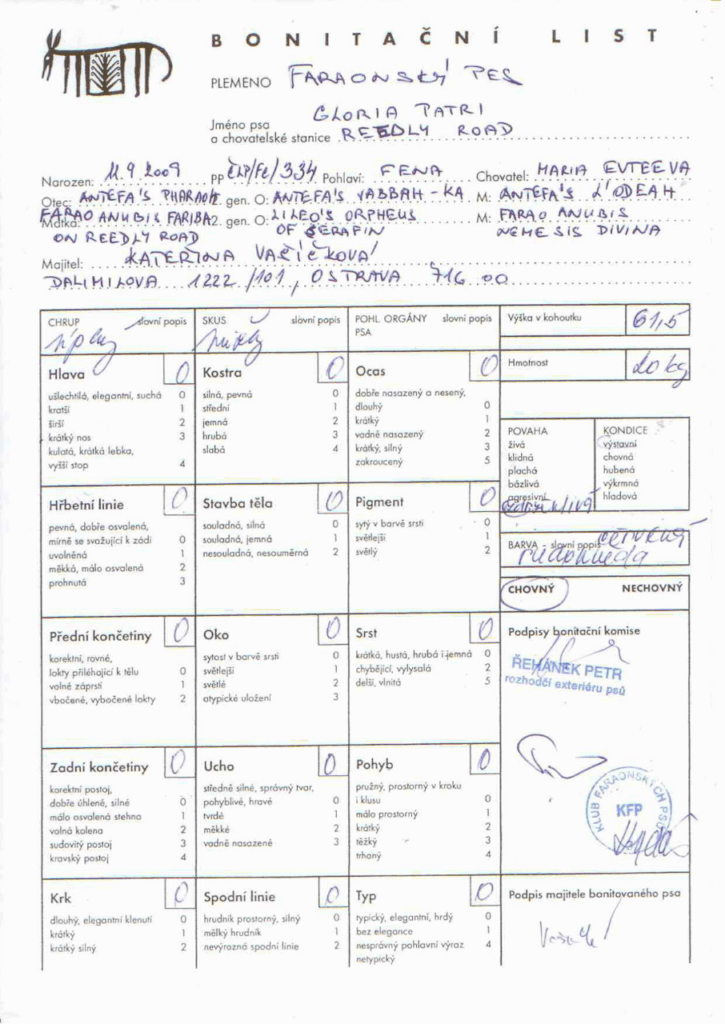 BONITAČNÍ LIST
PLEMENO FARAONSKÝ PES
Jméno psa GLORIA PATRI
a chovatelské stanice REEDLY ROAD
Narozen: 11.9.2009 PP ČLP/Fe/334 Pohlaví: FENA Chovatel: MARIA EVTEEVA
Otec: ANTEFA'S PHARAOH gen. O: ANTEFA'S VABBAH-KA M: ANTEFA'S L'ODEAH
Matka: FARAO ANUBIS FARIBA 2. gen. O: LILEO'S ORPHEUS M: FARAO ANUBIS
ON REEDLY ROAD OF SERAFIN NEMESIS DIVINA
Majitel: KATEŘINA VAŠÍČKOVÁ
DALIMILOVA 1222/101, OSTRAVA 716 00
CHRUP slovní popis
SKUS slovní popis
POHL. ORGÁNY slovní popis
PSA
Výška v kohoutku 61,5
Hmotnost 20 kg
Hlava 0
ušlechtilá, elegantní, suchá 0
kratší 1
širší 2
krátký nos 3
kulatá, krátká lebka,
vyšší stop 4
Kostra 0
silná, pevná 0
střední 1
jemná 2
hrubá 3
slabá 4
Ocas 0
dobře nasazený a nesený,
dlouhý 0
krátký 1
vadně nasazený 2
krátký, silný 3
zakroucený 5
POVAHA
živá
klidná
plachá
bázlivá
agresivní
KONDICE
výstavní
chovná
hubená
výkrmná
hladová
Hřbetní linie 0
pevná, dobře osvalená,
mírně se svažující k zádi 0
uvolněná 1
měkká, málo osvalená 2
prohnutá 3
Stavba těla 0
souladná, silná 0
souladná, jemná 1
nesouladná, nesouměrná 2
Pigment 0
sytý v barvě srsti 0
světlejší 1
světlý 2
BARVA – slovní popis
CHOVNÝ NECHOVNÝ
Přední končetiny 0
korektní, rovné,
lokty přiléhající k tělu 0
volné záprstí 1
vbočené, vybočené lokty 2
Oko 0
sytost v barvě srsti 0
světlejší 1
světlé 2
atypické uložení 3
Srst 0
krátká, hustá, hrubá i jemná 0
chybějící, vylysalá 2
delší, vlnitá 5
Podpisy bonitační komise
ŘEHÁNEK PETR
rozhodčí exteriéru psů
Zadní končetiny 0
korektní postoj,
dobře úhlené, silné 0
málo osvalená stehna 1
volná kolena 2
sudovitý postoj 3
kravský postoj 4
Ucho 0
středně silné, správný tvar,
pohyblivé, hravé 0
tvrdé 1
měkké 2
vadně nasazené 3
Pohyb 0
pružný, prostorný v kroku
i klusu 0
málo prostorný 1
krátký 2
těžký 3
trhaný 4
KLUB FARAONSKÝCH PSŮ
KFP
Krk 0
dlouhý, elegantní klenutí 0
krátký 1
krátký silný 2
Spodní linie 0
hrudník prostorný, silný 0
mělký hrudník 1
nevýrazná spodní linie 2
Typ 0
typický, elegantní, hrdý 0
bez elegance 1
nesprávný pohlavní výraz 4
netypický
Podpis majitele bonitovaného psa